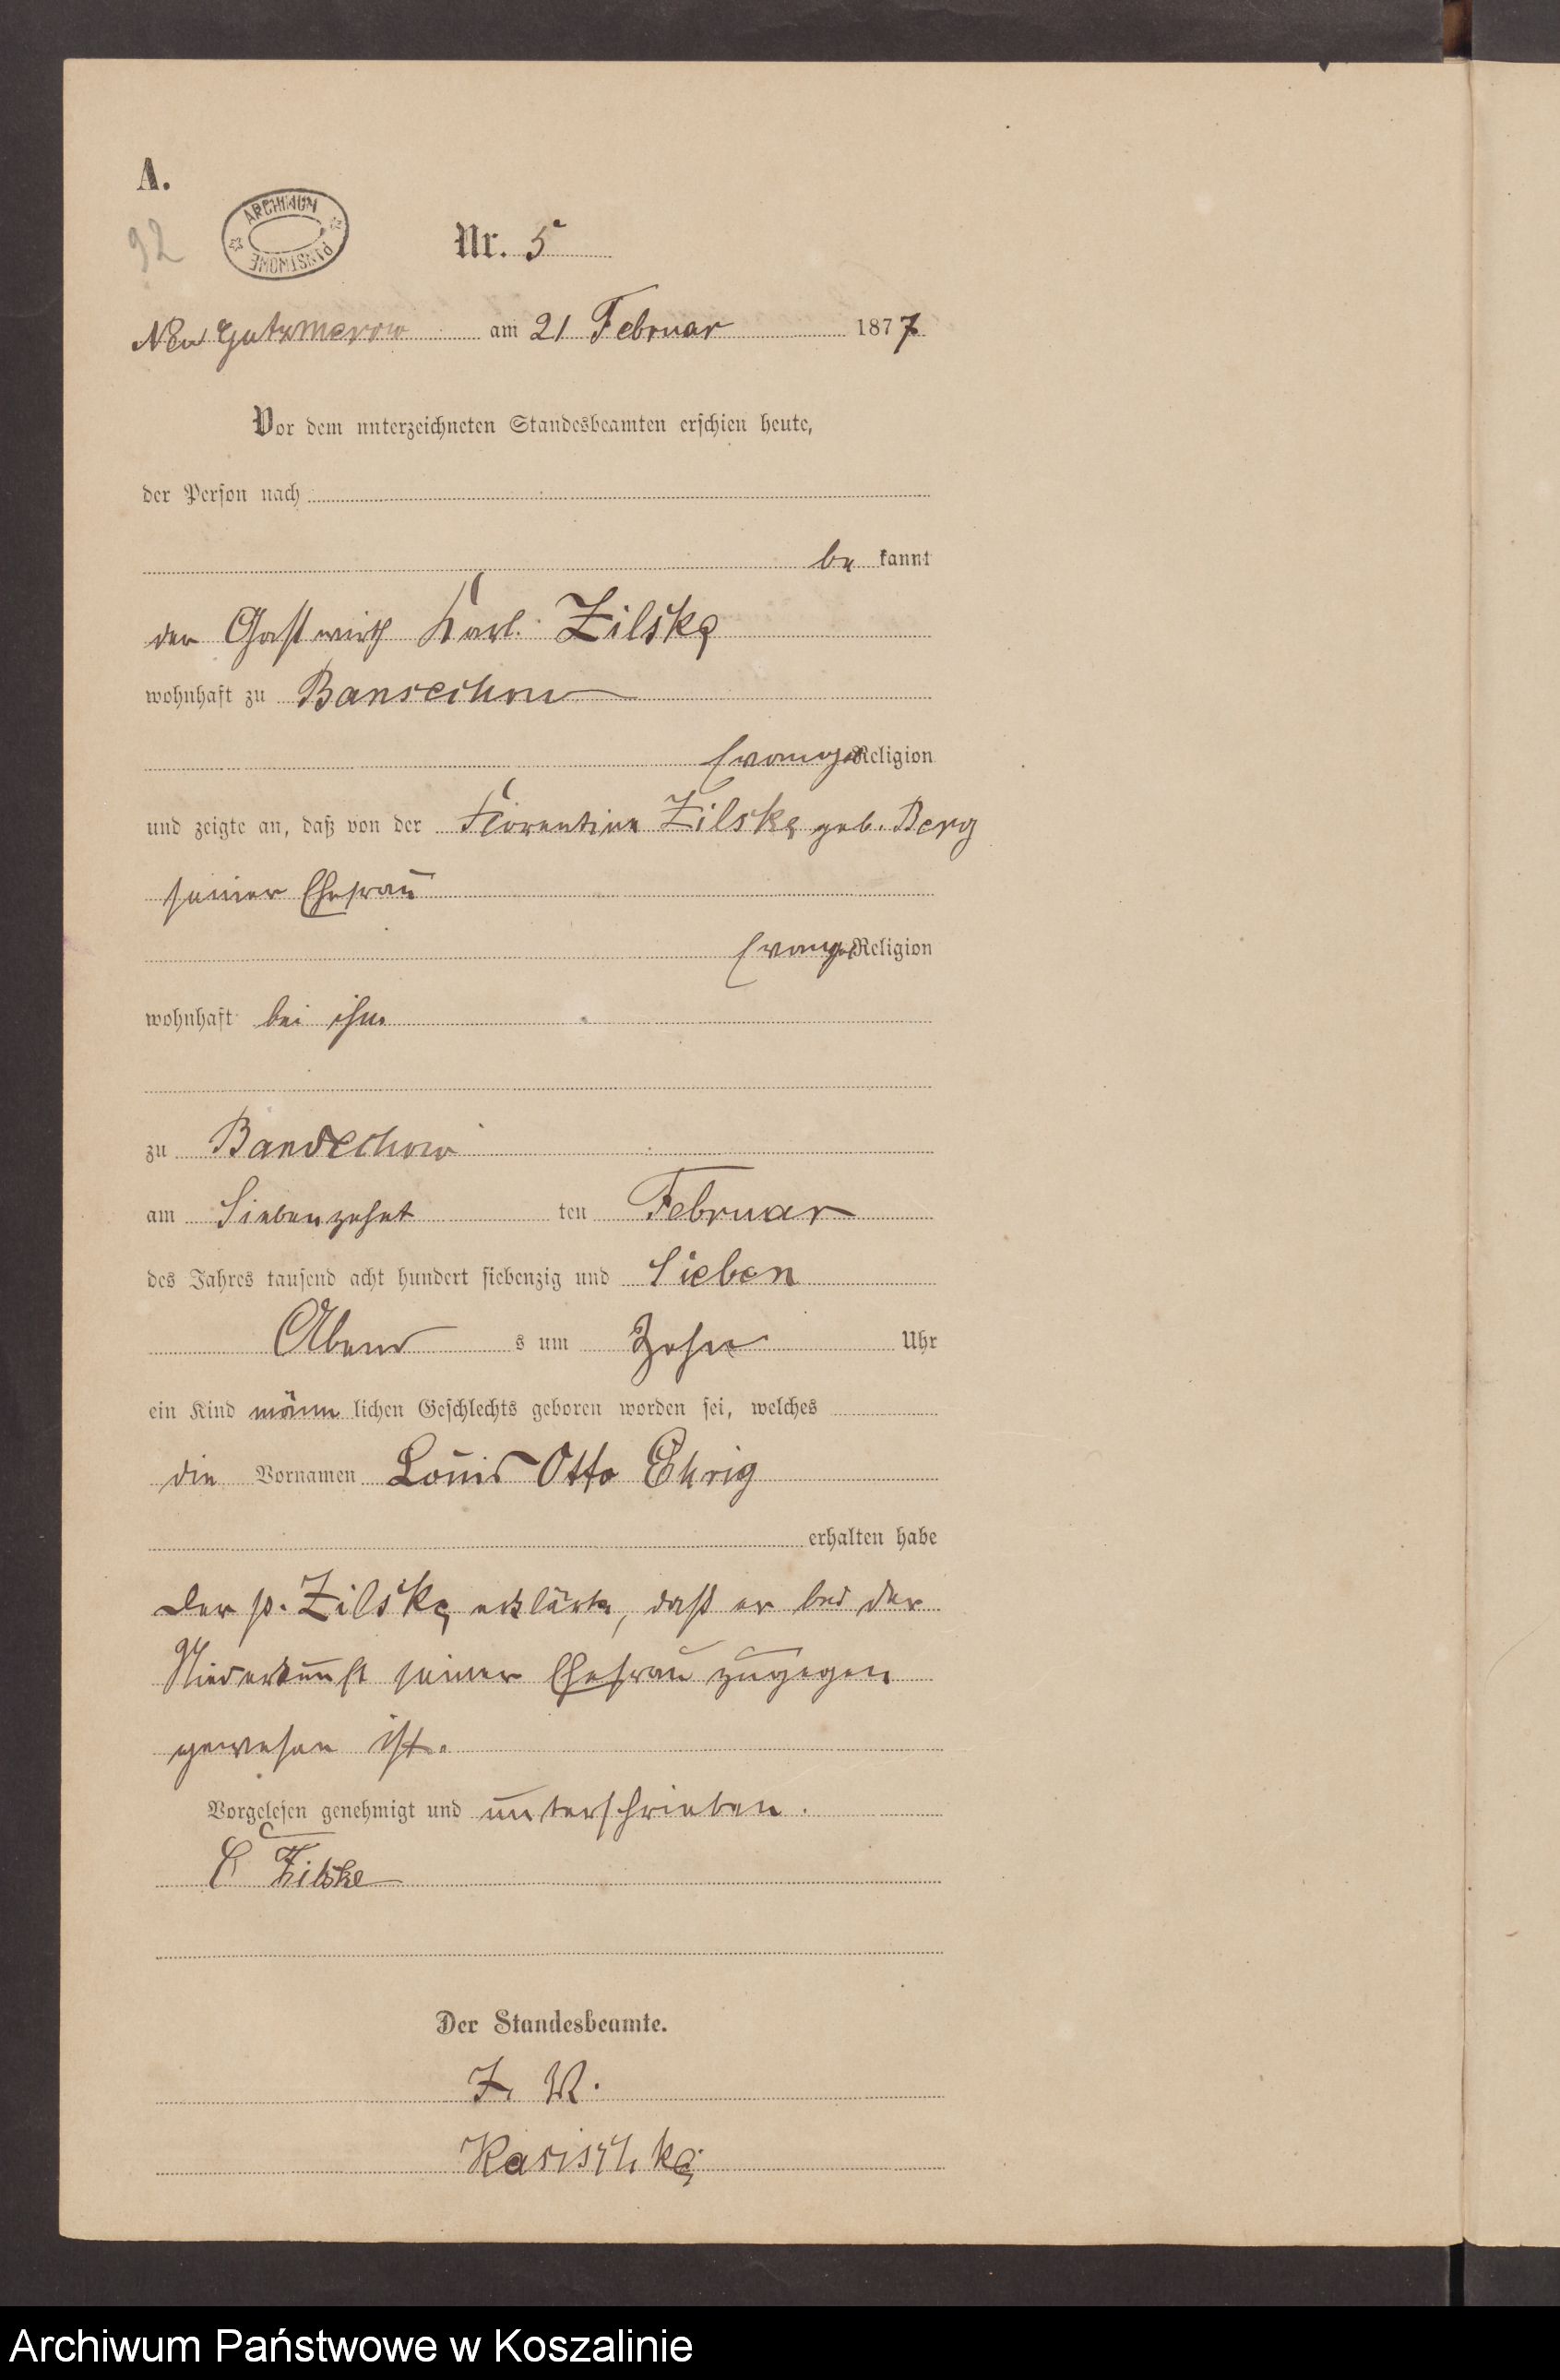 A.
92
ARCHIWUM PAŃSTWOWE
Nr. 5
Neu Gutzmerow am 21 Februar 1877
Vor dem unterzeichneten Standesbeamten erschien heute,
der Person nach
be kannt
der Gastwirth Karl Zilske
wohnhaft zu Bansechow
Evangel Religion
und zeigte an, daß von der Florentine Zilske geb. Berg
seiner Ehefrau
Evangel Religion
wohnhaft bei ihm
zu Bandechow
am Siebenzehnt ten Februar
des Jahres tausend acht hundert siebenzig und Sieben
Abend s um Zehn Uhr
ein Kind männ lichen Geschlechts geboren worden sei, welches
die Vornamen Louis Otto Ehrig
erhalten habe
Der p. Zilske erklärte, daß er bei der
Niederkunft seiner Ehefrau zugegen
gewesen ist.
Vorgelesen genehmigt und unterschrieben.
C Zilske
Der Standesbeamte.
I. V.
Archiwum Państwowe w Koszalinie